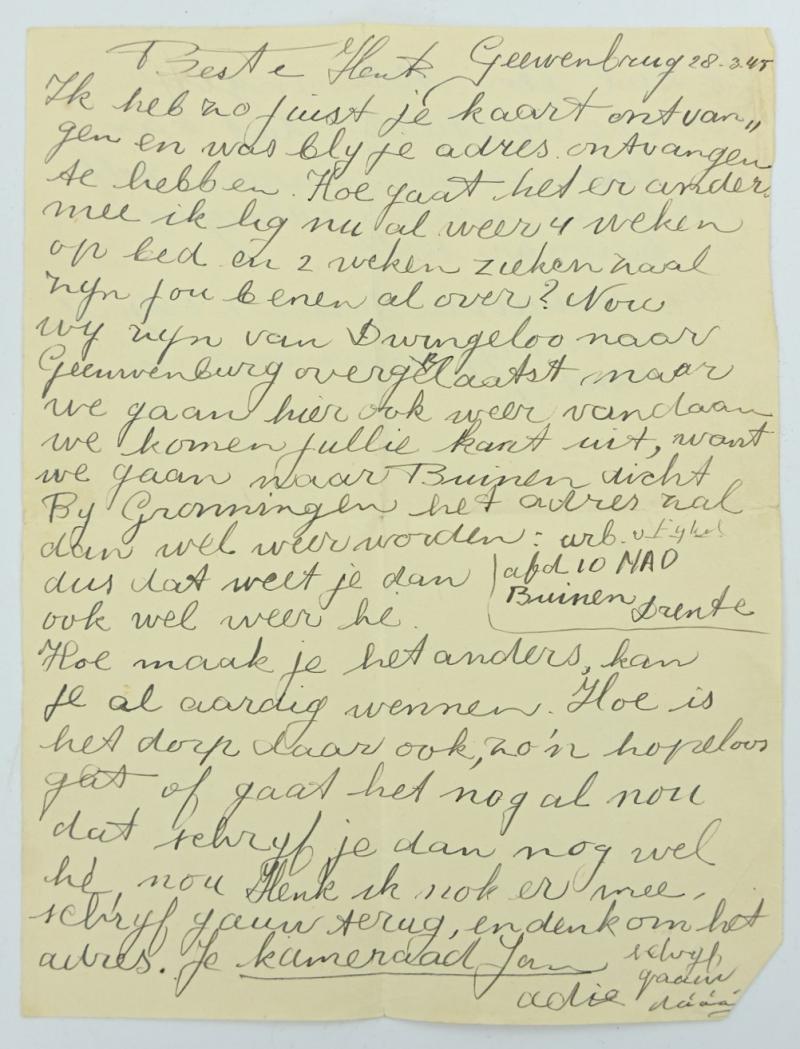 Beste Henk. Geeuwenbrug 28-3.45
Ik heb zo juist je kaart ontvan„
gen en was bly je adres ontvangen
te hebben. Hoe gaat het er anders
mee ik lig nu al weer 4 weken
op bed en 2 weken ziekenzaal
zyn jou benen al over? Nou
wy zyn van Dwingeloo naar
Geeuwenburg overgeplaatst maar
we gaan hier ook weer vandaan
we komen jullie kant uit, want
we gaan naar Buinen dicht
By Gronningen het adres zal
dan wel weer worden: arb.
dus dat weet je dan afd 10 NAD
ook wel weer hé. Buinen Drente
Hoe maak je het anders, kan
je al aardig wennen. Hoe is
het dorp daar ook, zo'n hopeloos
gat of gaat het nog al nou
dat schryf je dan nog wel
hé, nou Henk ik nok er mee,
schryf gauw terug, en denk om het
adres. Je kameraad Jan schryf
gauw
adie dááá